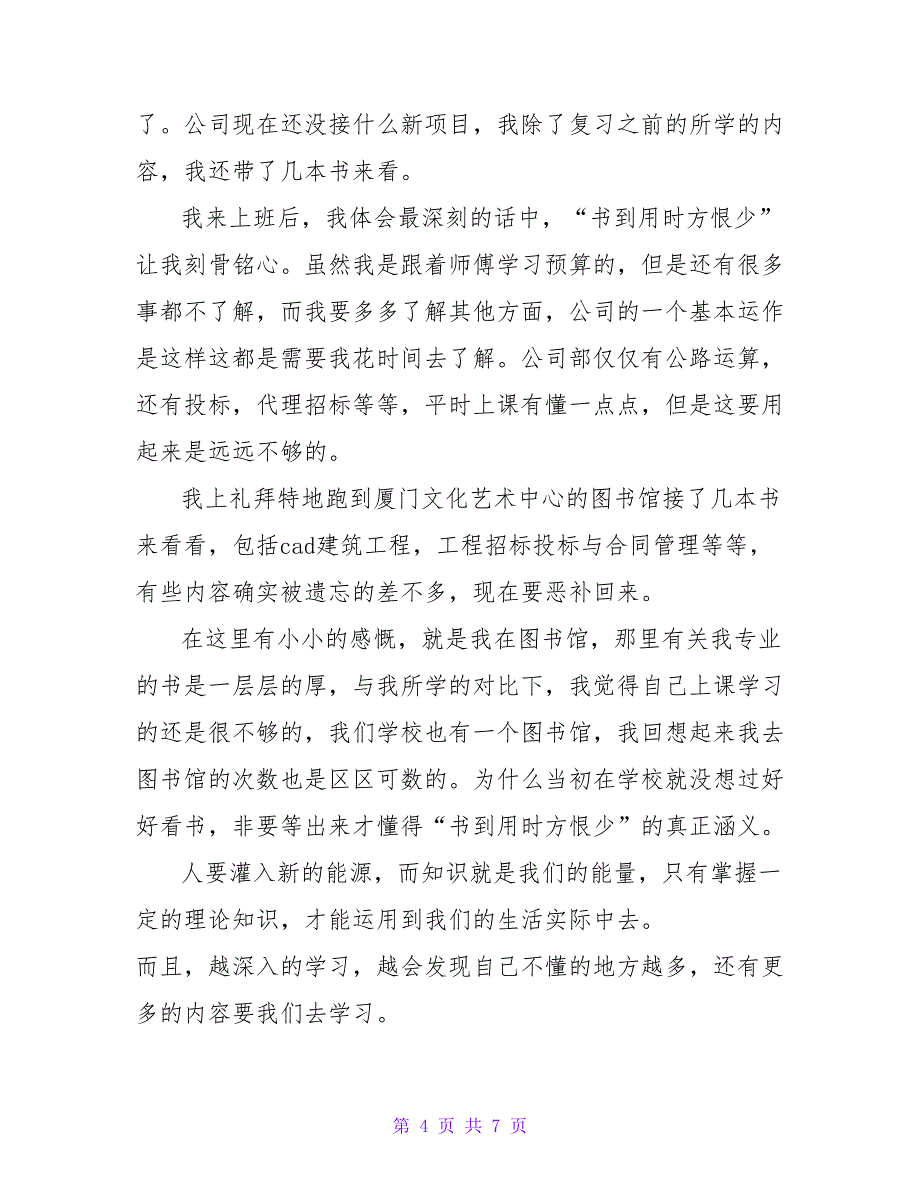 了。公司现在还没接什么新项目，我除了复习之前的所学的内
容，我还带了几本书来看。
我来上班后，我体会最深刻的话中，“书到用时方恨少”
让我刻骨铭心。虽然我是跟着师傅学习预算的，但是还有很多
事都不了解，而我要多多了解其他方面，公司的一个基本运作
是这样这都是需要我花时间去了解。公司部仅仅有公路运算，
还有投标，代理招标等等，平时上课有懂一点点，但是这要用
起来是远远不够的。
我上礼拜特地跑到厦门文化艺术中心的图书馆接了几本书
来看看，包括cad建筑工程，工程招标投标与合同管理等等，
有些内容确实被遗忘的差不多，现在要恶补回来。
在这里有小小的感慨，就是我在图书馆，那里有关我专业
的书是一层层的厚，与我所学的对比下，我觉得自己上课学习
的还是很不够的，我们学校也有一个图书馆，我回想起来我去
图书馆的次数也是区区可数的。为什么当初在学校就没想过好
好看书，非要等出来才懂得“书到用时方恨少”的真正涵义。
人要灌入新的能源，而知识就是我们的能量，只有掌握一
定的理论知识，才能运用到我们的生活实际中去。
而且，越深入的学习，越会发现自己不懂的地方越多，还有更
多的内容要我们去学习。
第 4 页 共 7 页